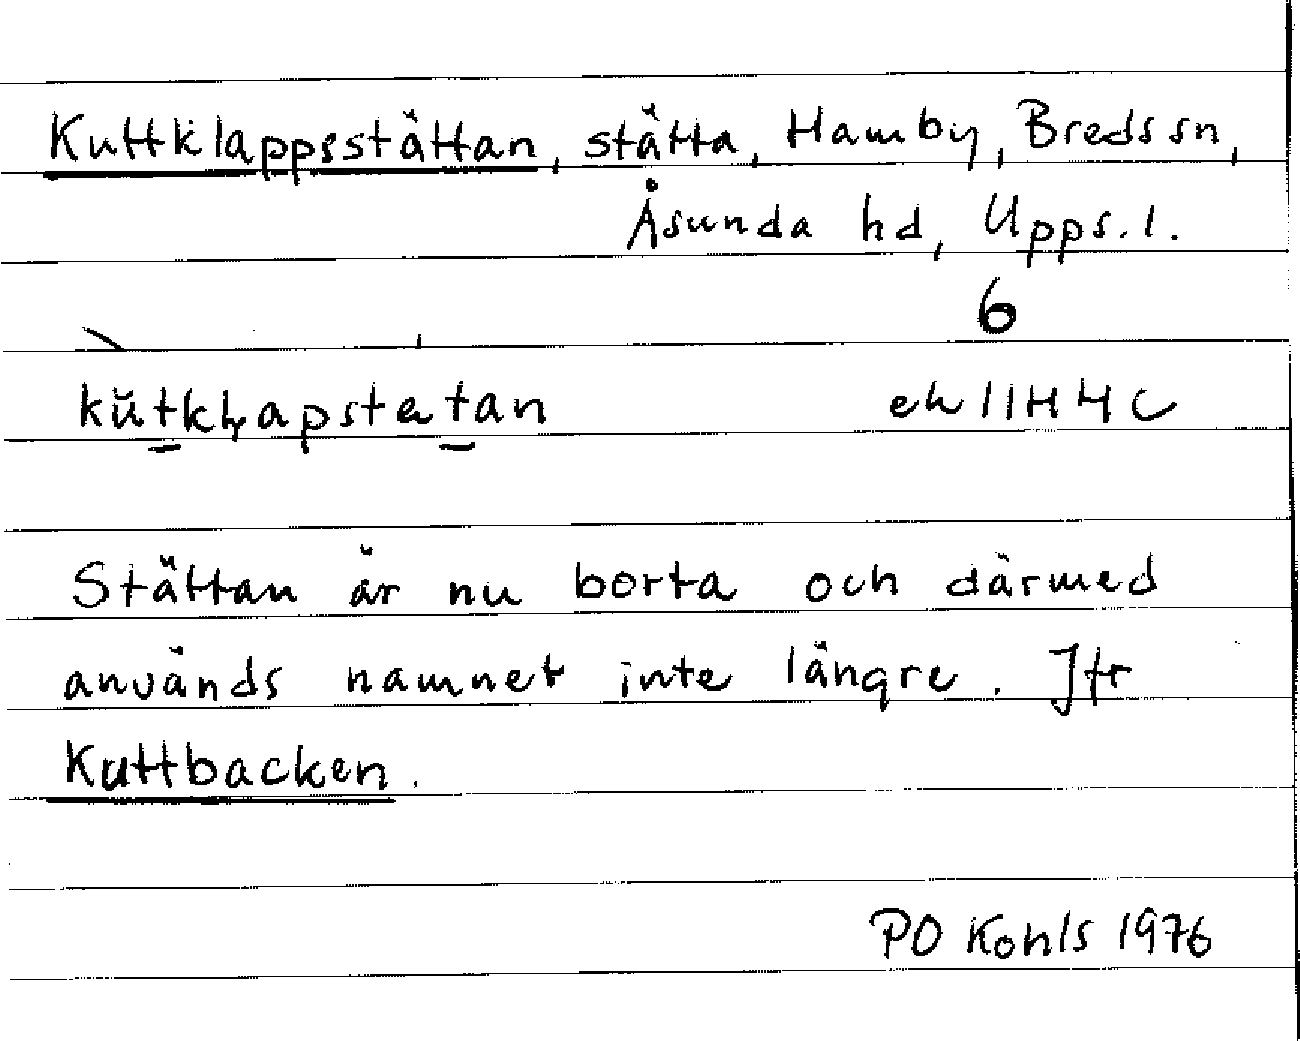 Kuttklappsstättan, stätta, Hamby, Breds sn,
Åsunda hd, Upps. l.
6
kŭtkḷapstetan ek 11H 4c
Stättan är nu borta och därmed
används namnet inte längre. Jfr
Kuttbacken.
PO Kohls 1976